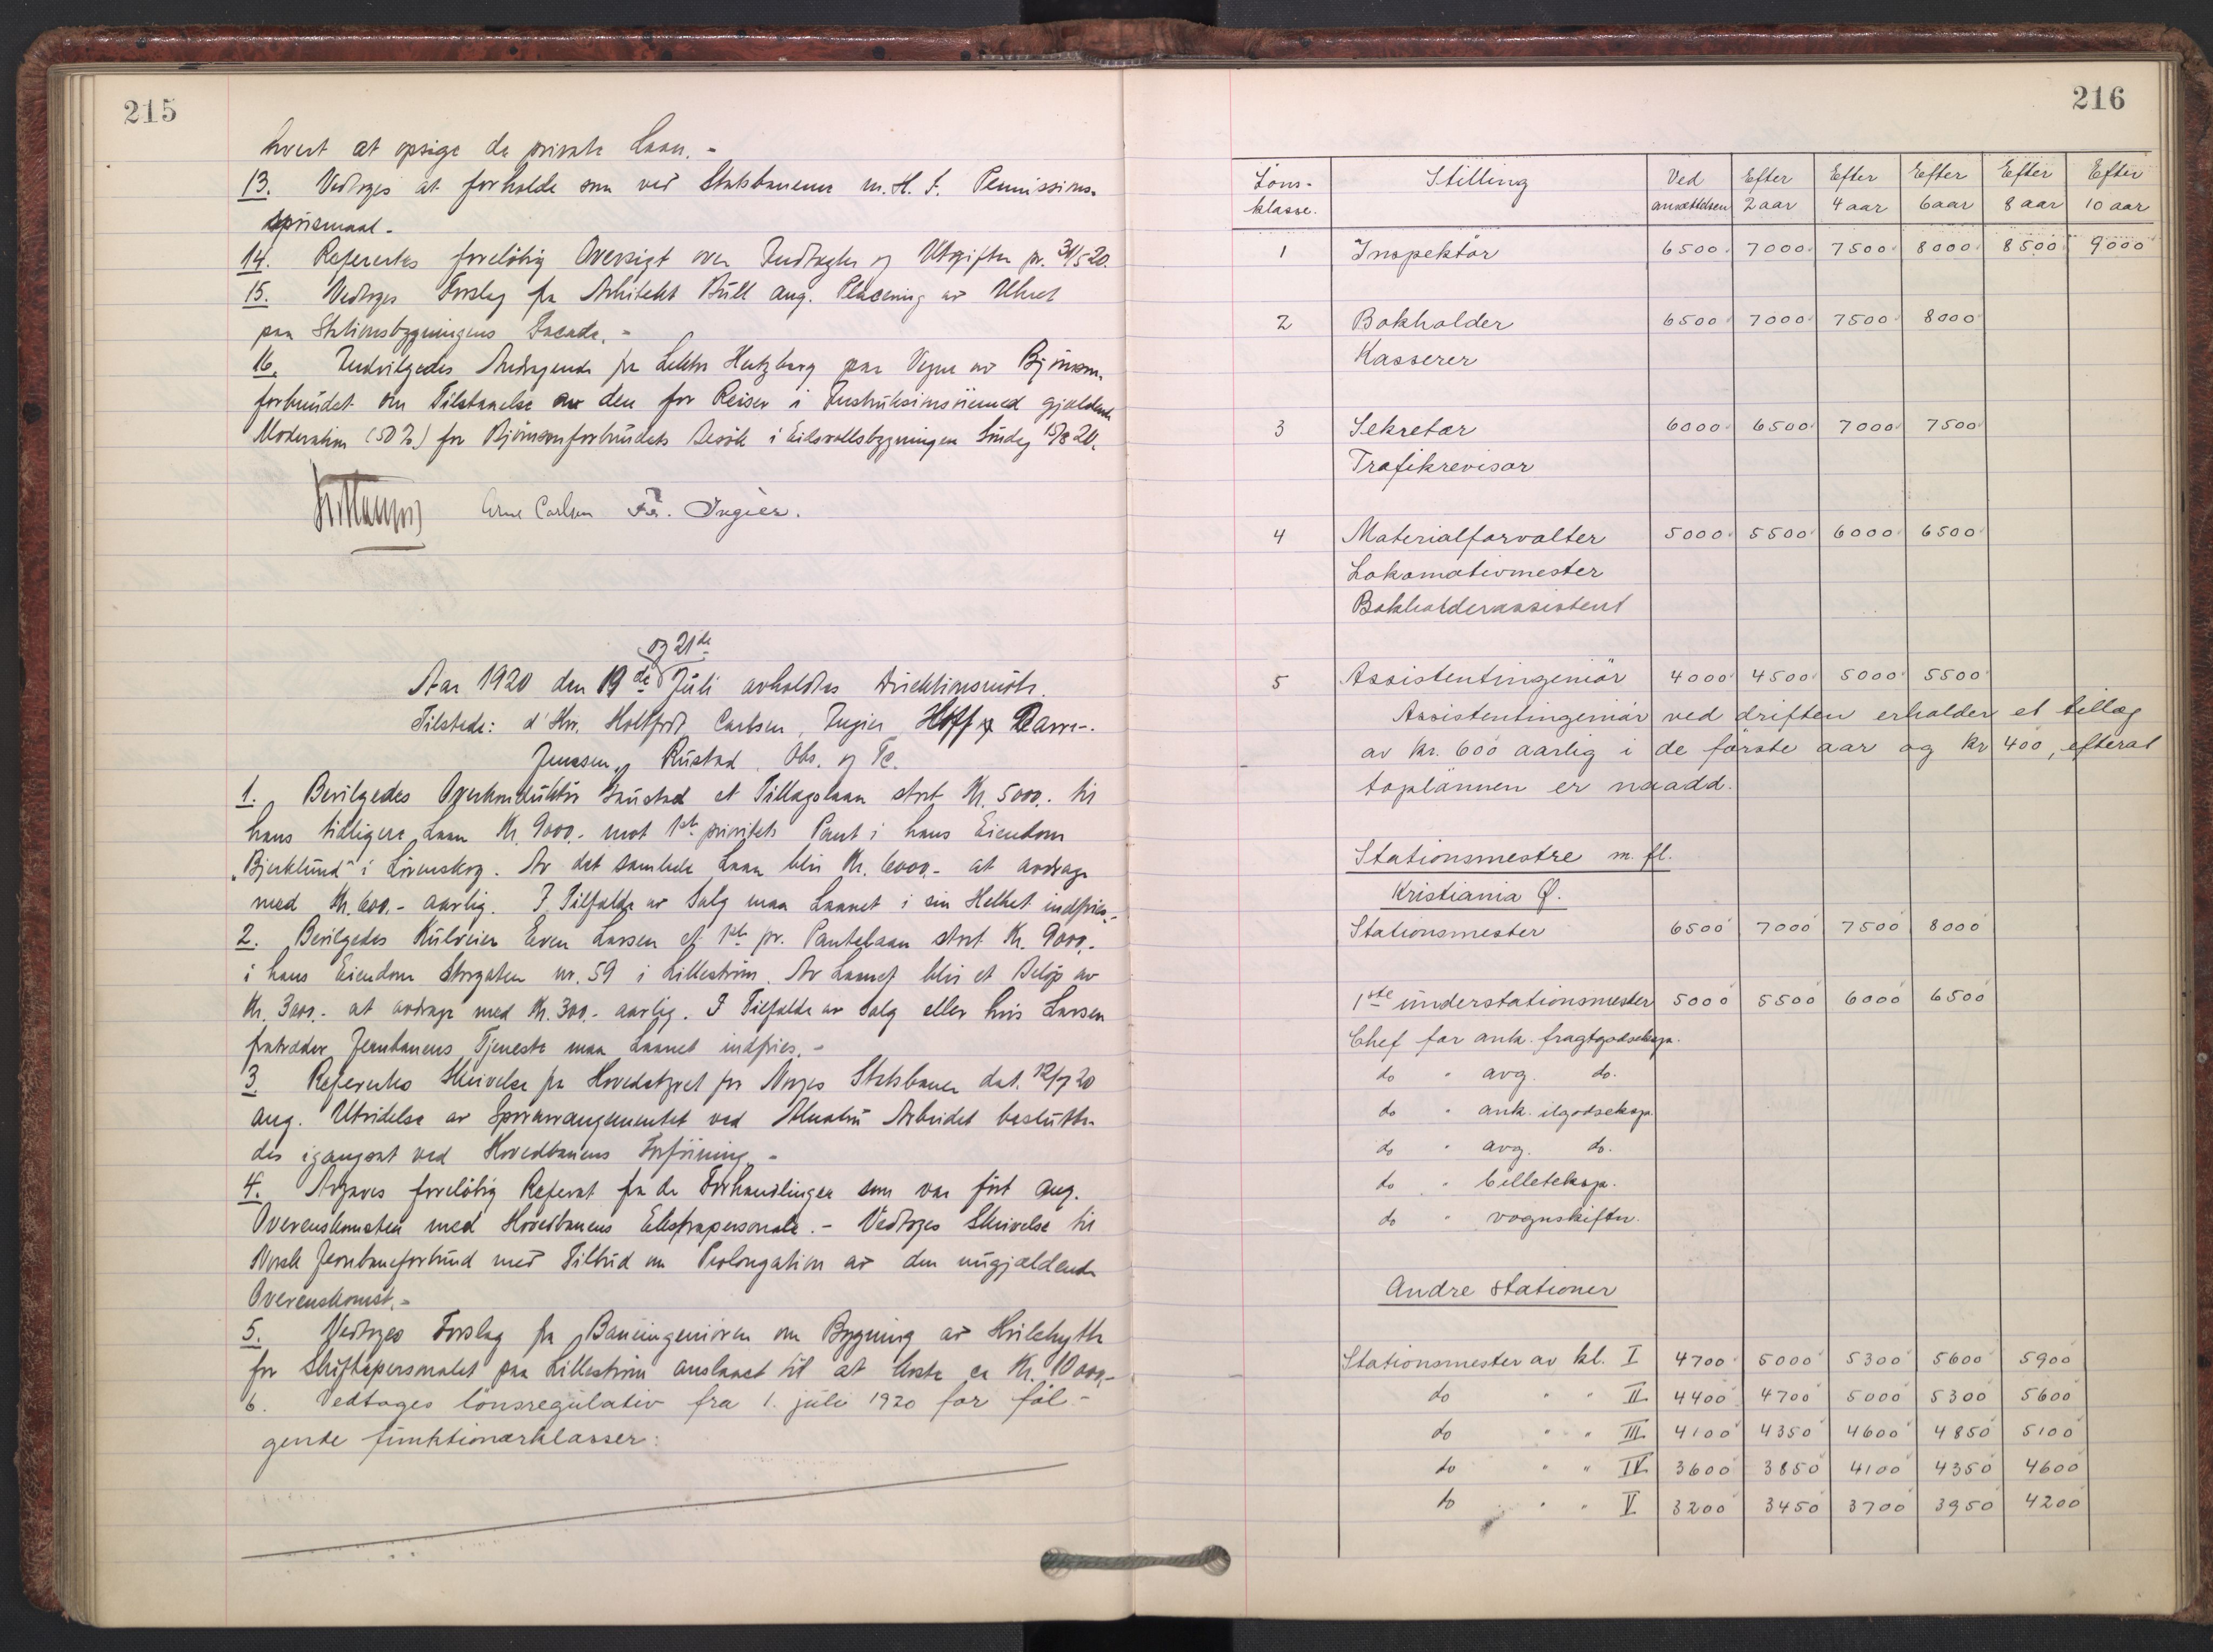 215
hvert at opsige de private Laan. -
13. Vedtoges at forholde som ved Statsbanerne m. H. t. Permissions-
spörsmaal. -
14. Refertes foreløbig Oversigt over Indtægter og Utgifter pr. 31/5 20.
15. Vedtoges Forslag fra Arkitekt Bull ang. Placering av Uhret
paa Stationsbygningens Facade. -
16. Indvilgedes Andragende fra Lektor Hertzberg paa Vegne av Bjørnson-
forbundet om Tilstaaelse av den for Reiser i Instruktionsöiemed gjældende
Moderation (50%) for Bjørnsonforbundets Besök i Eidsvollsbygningen Söndag 15/8 20.
Arne Carlsen Fr. Ingier.
og 21de
Aar 1920 den 19de Juli avholdtes Direktionsmöte.
Tilstede: d'Hrr. Holtfodt Carlsen, Ingier, Hoff og Darre-
Jenssen, Rustad Obs. og Tc.
1. Bevilgedes Overkonduktör Gaustad et Tillægslaan stort Kr. 5000.- til
hans tidligere Laan Kr. 9000.- mot 1ste prioritets Pant i hans Eiendom
„Bjerklund" i Lörenskog. Av det samlede Laan blir Kr. 6000.- at avdrage
med Kr. 600.- aarlig. I Tilfælde av Salg maa Laanet i sin Helhet indfries. -
2. Bevilgedes Kulveier Even Larsen et 1ste pr. Pantelaan stort Kr. 9000.-
i hans Eiendom Storgaten nr. 59 i Lilleström. Av Laanet blir et Belöp av
Kr. 3000.- at avdrage med Kr. 300.- aarlig. I Tilfælde av Salg eller hvis Larsen
fratræder Jernbanens Tjeneste maa Laanet indfries. -
3. Refertes Skrivelse fra Hovedstyret for Norges Statsbaner dat. 12/7 20
ang. Utvidelse av Sporarrangementet ved Alnabru Arbeidet beslutte-
des igangsat ved Hovedbanens Forföining -
4. Avgaves foreløbig Referat fra de Forhandlinger som var fört ang.
Overenskomsten med Hovedbanens Ekstrapersonale. - Vedtoges Skrivelse til
Norsk Jernbaneforbund med Tilbud om Prolongation av den nugjældende
Overenskomst. -
5. Vedtoges Forslag fra Baneingeniören om Bygning av Hvilehytte
for Skiftepersonalet paa Lilleström anslaaet til at koste ca Kr. 10 000,-
6. Vedtages lönsregulativ fra 1. juli 1920 for föl-
gende funktionærklasser:
216
Löns- Stilling Ved Efter Efter Efter Efter Efter
klasse. ansættelsen 2 aar 4 aar 6 aar 8 aar 10 aar
1 Inspektör 6500 7000 7500 8000 8500 9000
2 Bokholder 6500 7000 7500 8000
Kasserer
3 Sekretær 6000 6500 7000 7500
Trafikrevisor
4 Materialforvalter 5000 5500 6000 6500
Lokomotivmester
Bokholderassistent
5 Assistentingeniör 4000 4500 5000 5500
Assistentingeniör ved driften erholder et tillæg
av kr. 600 aarlig i de förste aar og kr 400, efterat
toplönnen er naadd.
Stationsmestre m. fl.
Kristiania Ø.
Stationsmester 6500 7000 7500 8000
1ste understationsmester 5000 5500 6000 6500
Chef for ank. fragtgodseksp.
do " avg. do.
do " ank. ilgodseksp.
do " avg. do.
do " billeteksp.
do " vognskiftn.
Andre stationer
Stationsmester av kl. I 4700 5000 5300 5600 5900
do " " II 4400 4700 5000 5300 5600
do " " III 4100 4350 4600 4850 5100
do " " IV 3600 3850 4100 4350 4600
do " " V 3200 3450 3700 3950 4200